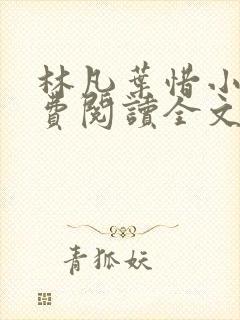 林凡葉惜小
費閱讀全文
青狐妖